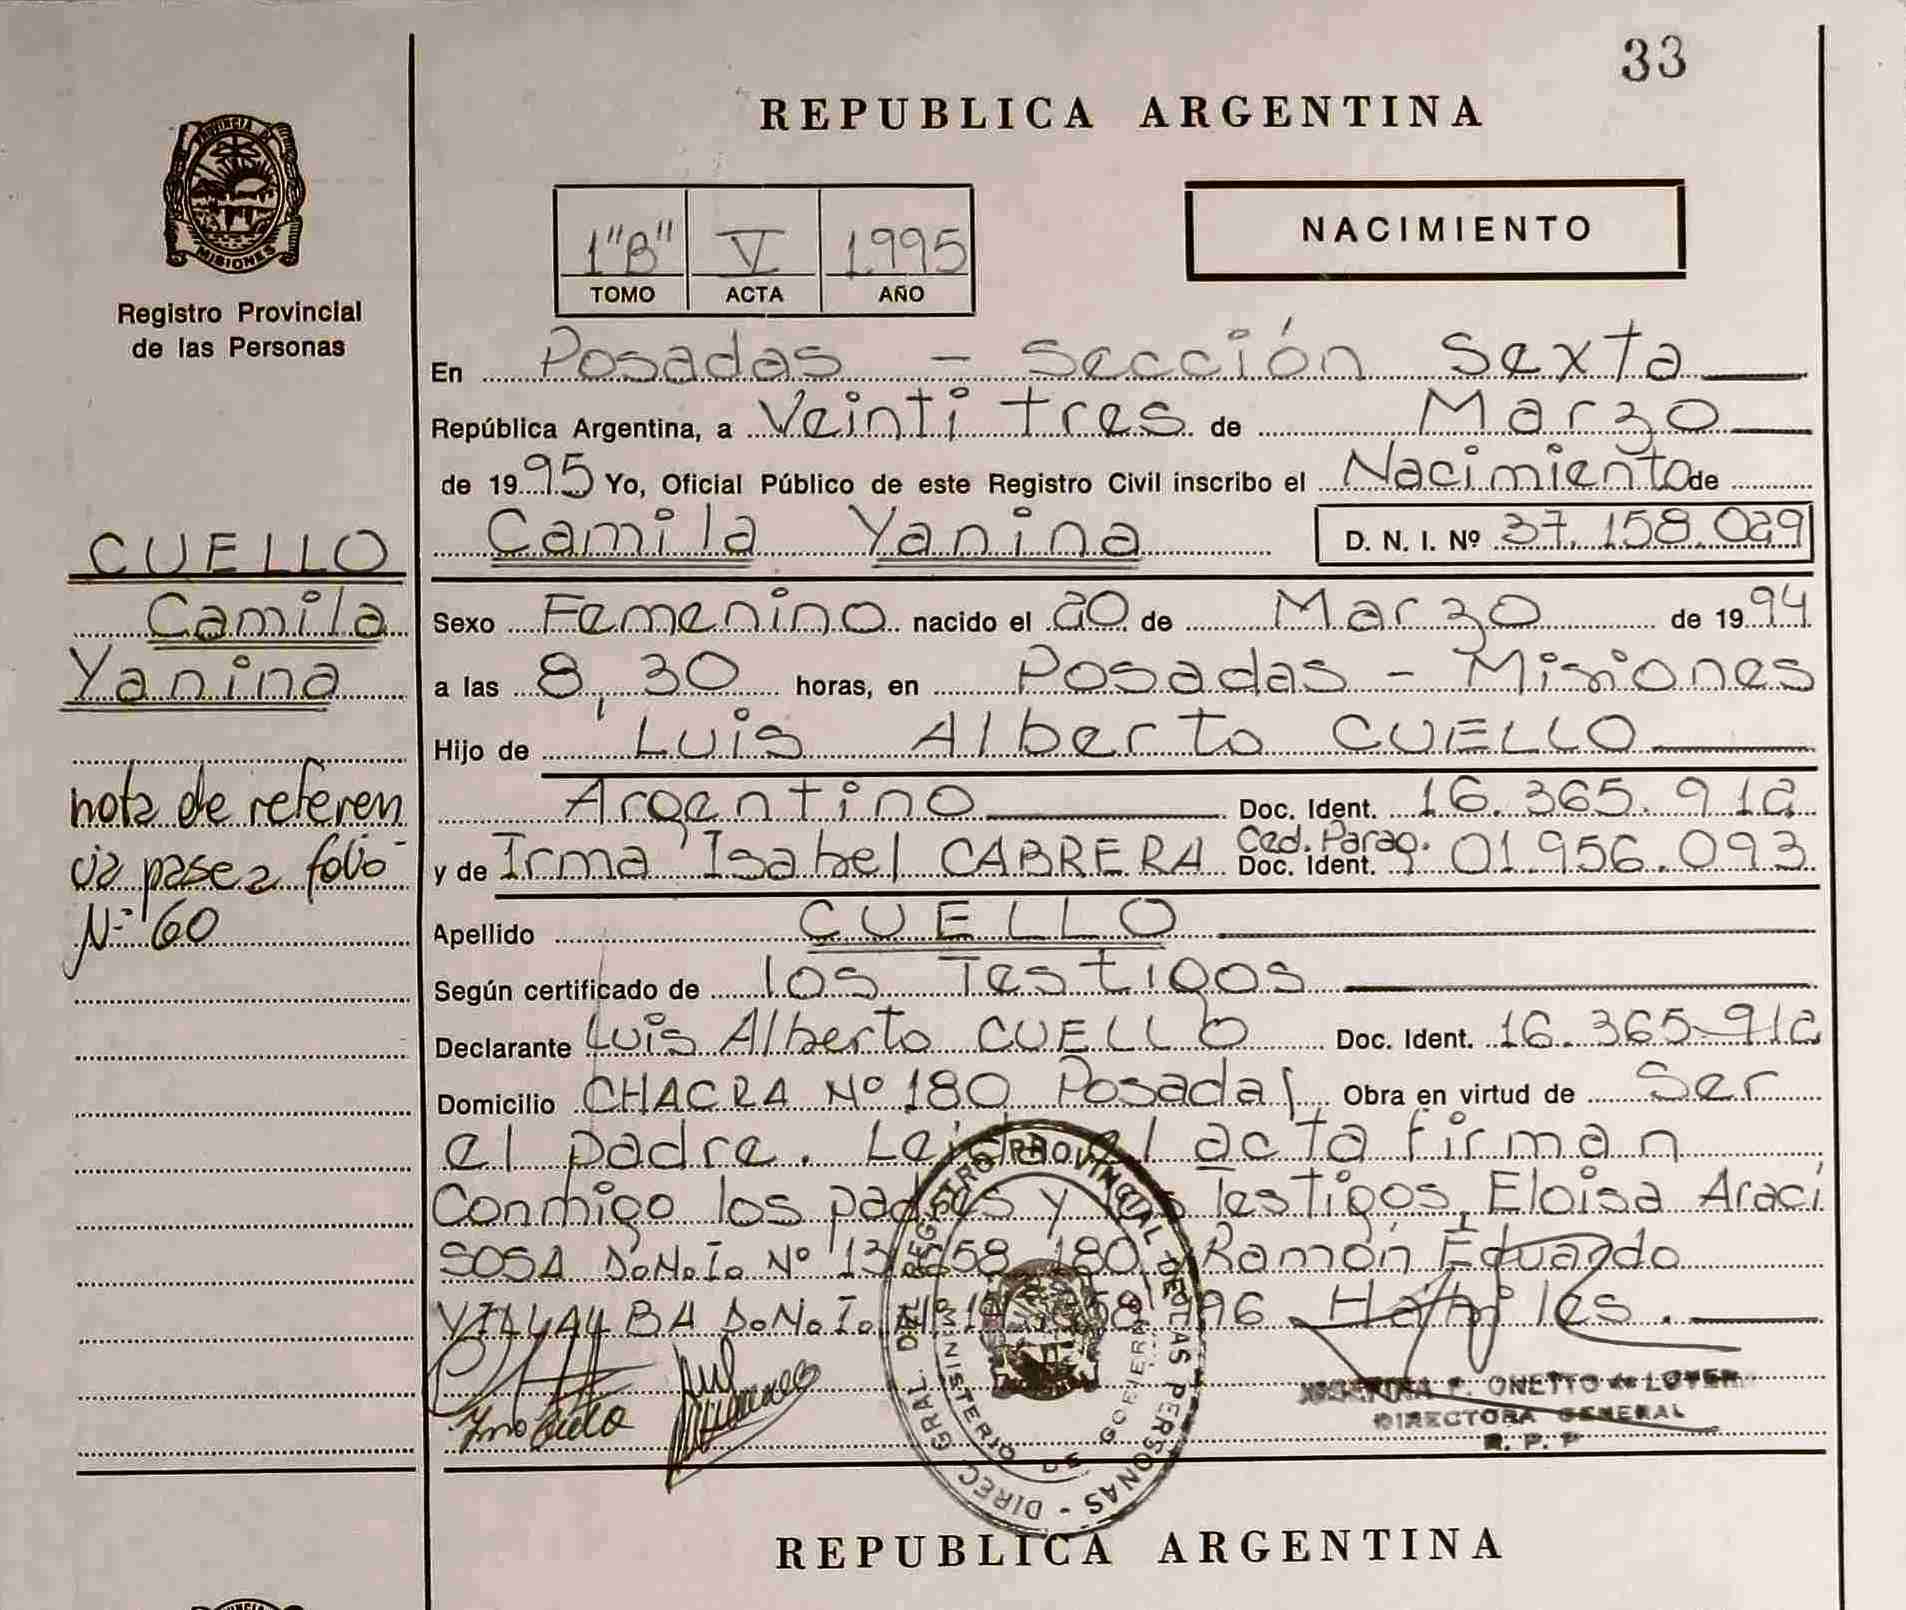 33
REPUBLICA ARGENTINA
PROVINCIA DE
MISIONES
Registro Provincial
de las Personas
1"B" V 1.995
TOMO ACTA AÑO
NACIMIENTO
En Posadas - Sección Sexta
República Argentina, a Veinti tres de Marzo
de 1995 Yo, Oficial Público de este Registro Civil inscribo el Nacimiento de
Camila Yanina D. N. I. Nº 37.158.029
CUELLO
Camila
Yanina
Sexo Femenino nacido el 20 de Marzo de 1994
a las 8,30 horas, en Posadas - Misiones
Hijo de Luis Alberto CUELLO
Argentino Doc. Ident. 16.365.912
y de Irma Isabel CABRERA Ced. Parag. Doc. Ident. 01.956.093
nota de referen
cia pase a folio
Nº 60
Apellido CUELLO
Según certificado de los Testigos
Declarante Luis Alberto CUELLO Doc. Ident. 16.365.912
Domicilio CHACRA Nº 180 Posadas Obra en virtud de Ser
el padre. Leida el acta firman
Conmigo los padres y los Testigos, Eloisa Araci
SOSA D.N.I. Nº 180 Ramón Eduardo
VILLALBA D.N.I. Hábiles.
DIREC. GRAL. DEL REGISTRO PROVINCIAL DE LAS PERSONAS -
MINISTERIO DE GOBIERNO
ONETTO de
DIRECTORA GENERAL
R. P. P
REPUBLICA ARGENTINA